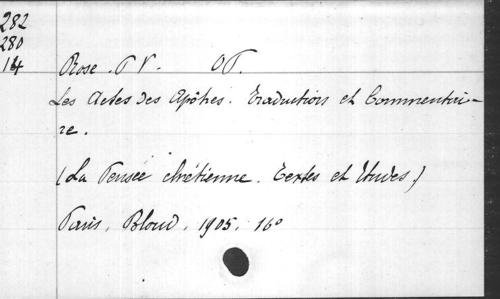 282
280
14
Rose. P V. OP.
Les Actes des Apôtres. Traduction et Commentai-
re.
(La Pensée chrétienne. Textes et Etudes.)
Paris, Bloud, 1905, 16°